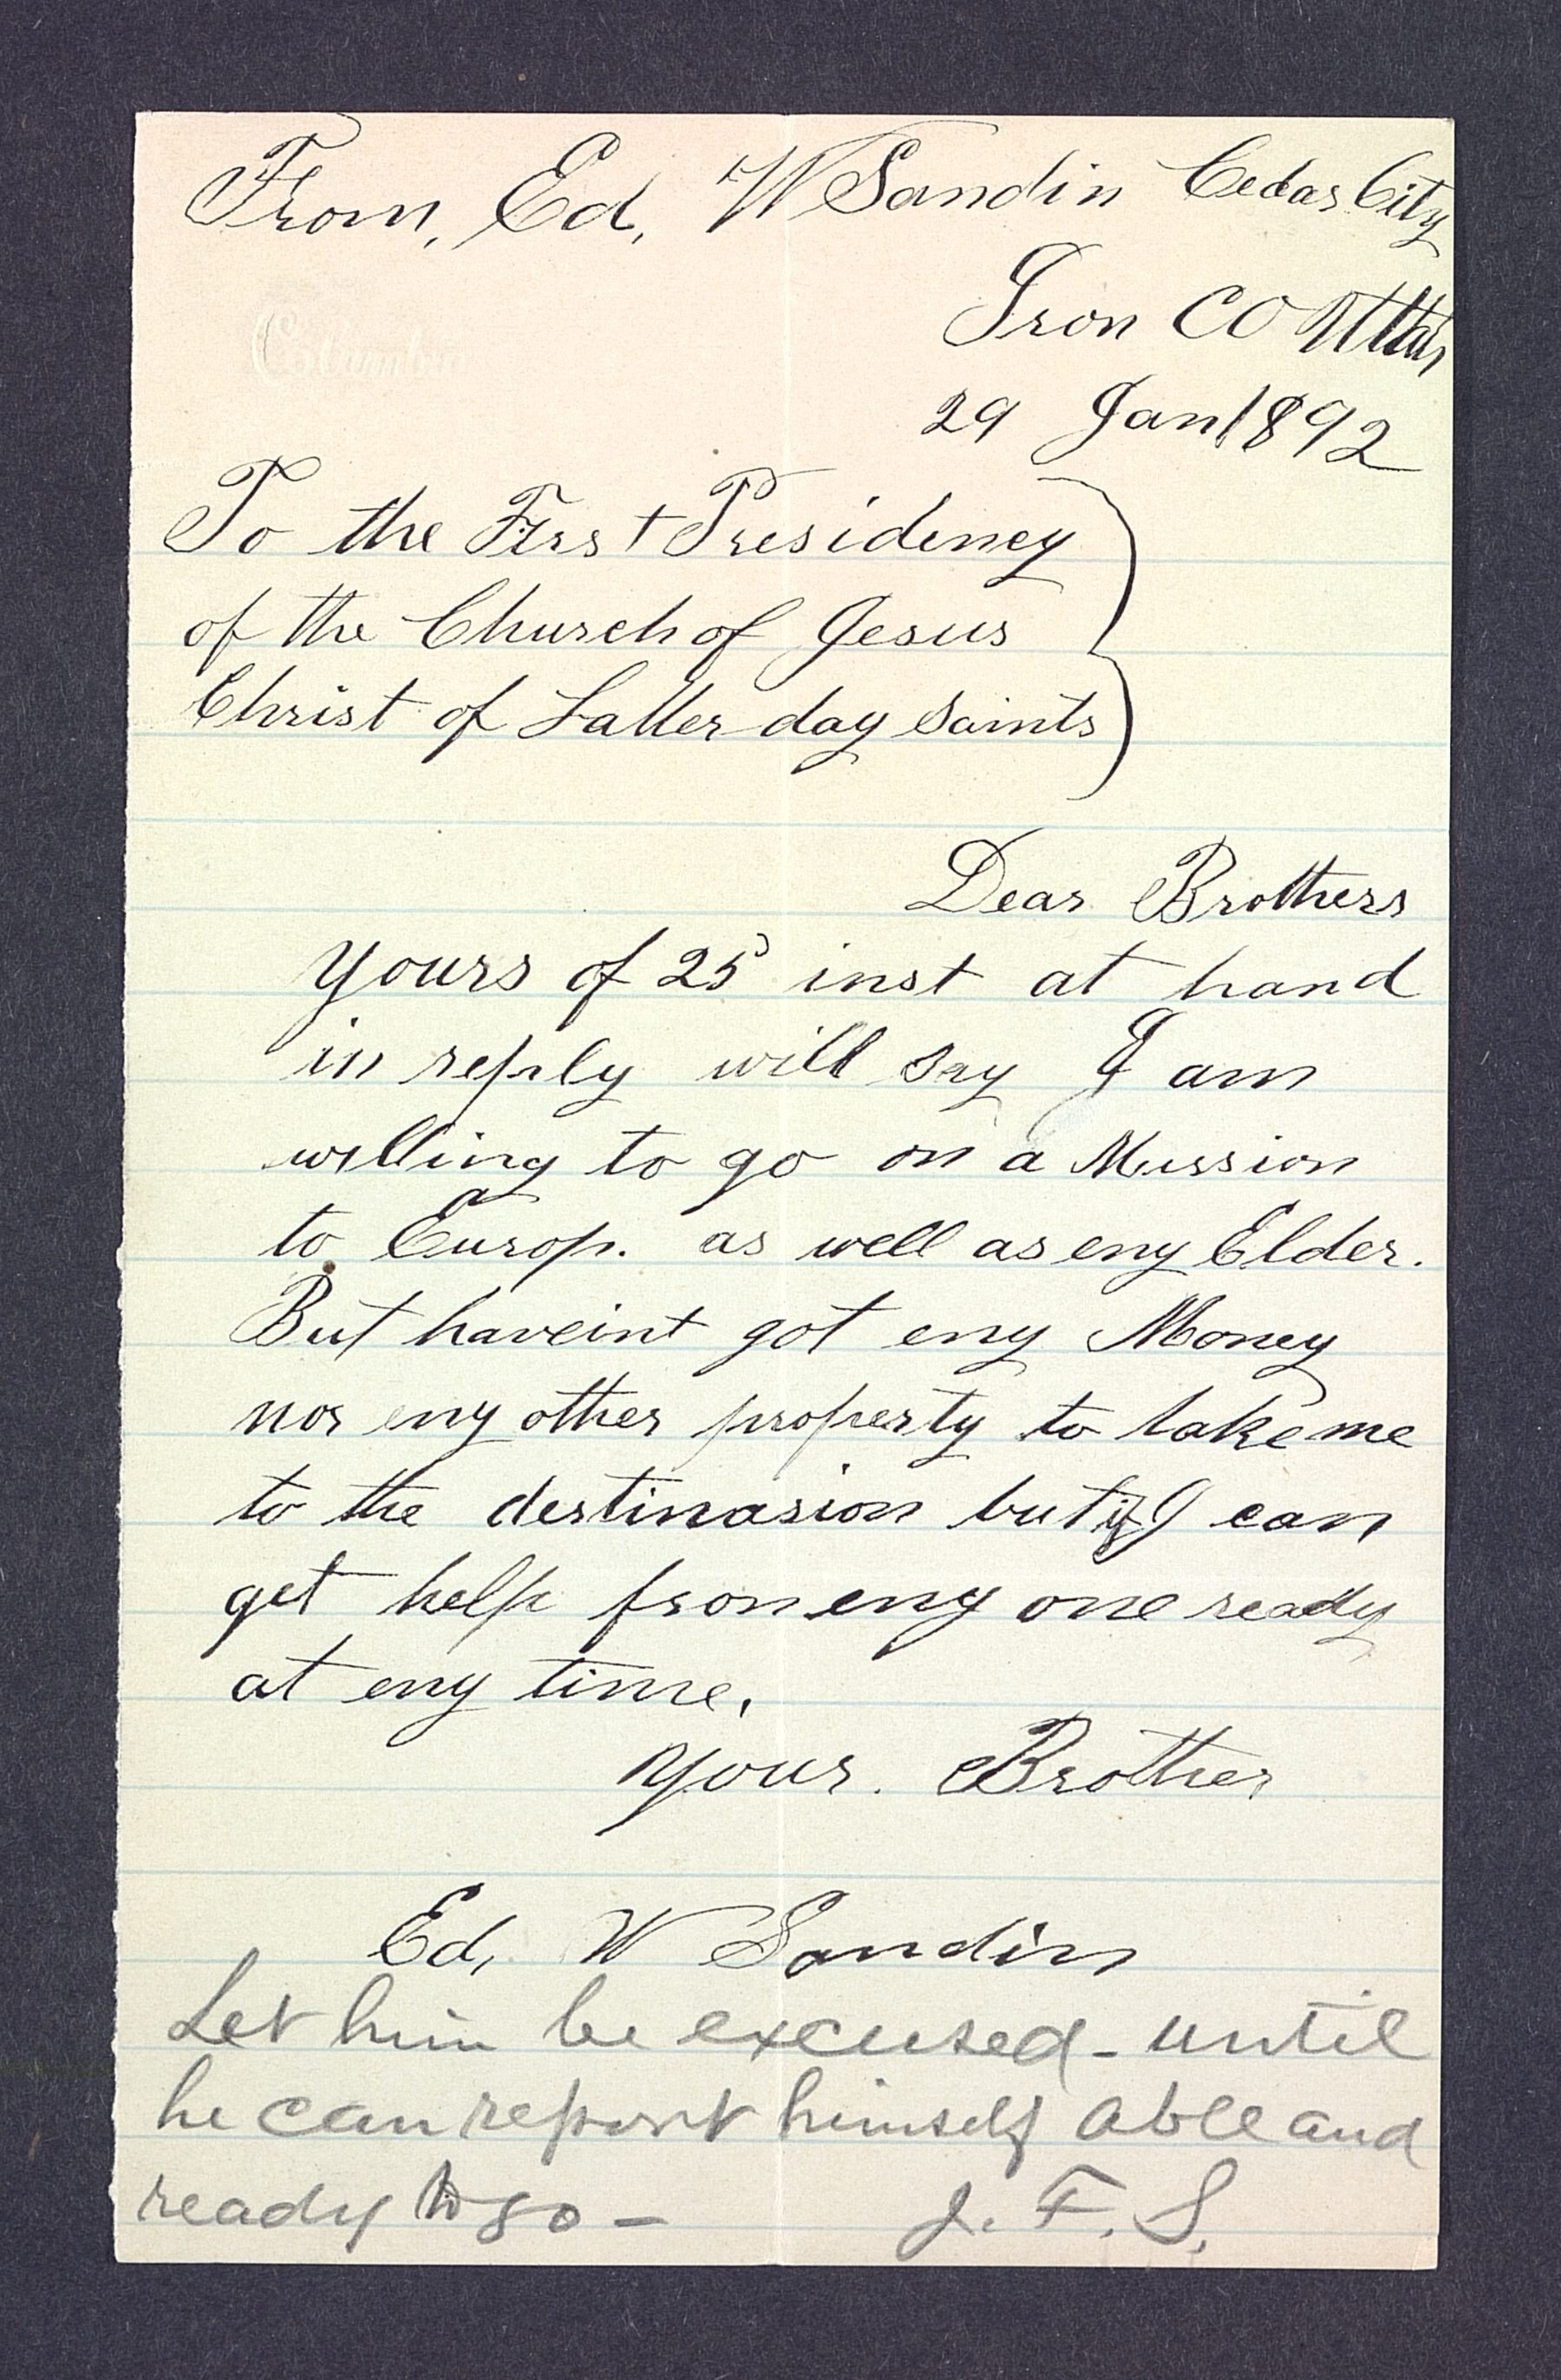 From, Ed, W Sandin Cedar City
Iron CO Uttah
29 Jan 1892
Columbia
To the First Presidency
of the Church of Jesus
Christ of Latter day Saints
Dear Brothers
Yours of 25 inst at hand
in reply will say I am
willing to go on a Mission
to Europ. as well as eny Elder.
But haveint got eny Money
nor eny other property to take me
to the destinasion but if I can
get help from eny one ready
at eny time.
Your. Brother
Ed, W Sandin
Let him be excused - until
he can report himself able and
ready to go -   J. F. S.